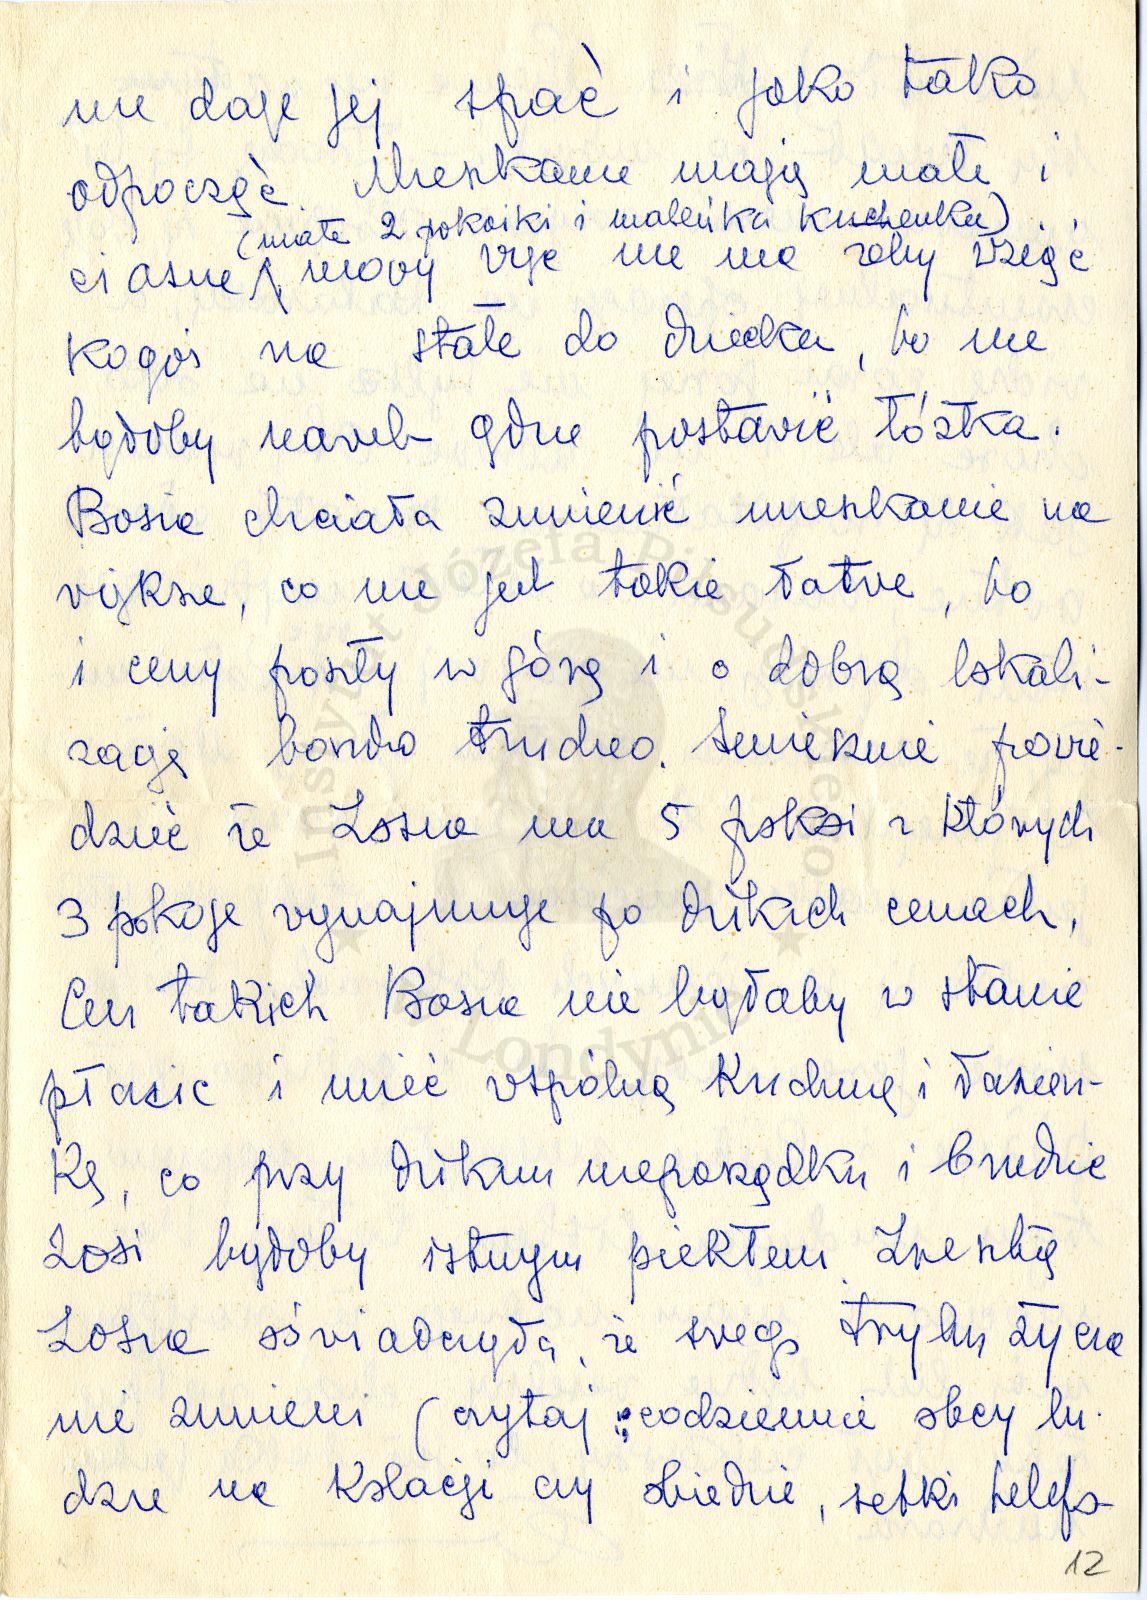 nie daje jej spać i jako tako
odpocząć. Mieszkanie mają małe i
(małe 2 pokoiki i maleńka kuchenka)
ciasne, mowy więc nie ma żeby wziąć
kogoś na stałe do dziecka, bo nie
byłoby nawet gdzie postawić łóżka.
Bosia chciała zmienić mieszkanie na
większe, co nie jest takie łatwe, bo
i ceny poszły w górę i o dobrą lokali-
zację bardzo trudno. Śmiesznie powie-
dzieć że Zosia ma 5 pokoi z których
3 pokoje wynajmuje po dzikich cenach.
Cen takich Bosia nie byłaby w stanie
płacić i mieć wspólną kuchnię i łazien-
kę, co przy dzikim nieporządku i brudzie
Zosi byłoby istnym piekłem. Zresztą
Zosia oświadczyła, że swego trybu życia
nie zmieni (czytaj: codziennie obcy lu-
dzie na kolacji czy obiedzie, setki telefo-
12
Instytut Józefa Piłsudskiego
Londynie